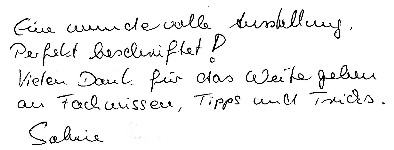 Eine wundervolle Ausstellung.
Perfekt beschriftet!
Vielen Dank für das Weitergeben
an Fachwissen, Tipps und Tricks.
Sabine